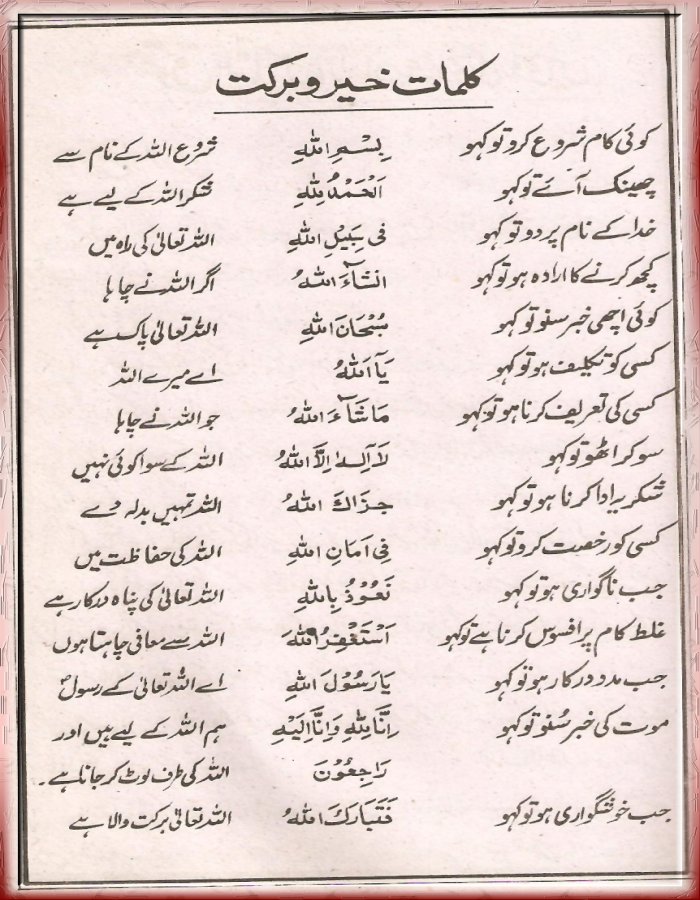 کلمات خیر و برکت
کوئی کام شروع کرو تو کہو بِسْمِ اللهِ شروع اللہ کے نام سے
چھینک آئے تو کہو اَلْحَمْدُ لِلّٰهِ شکر اللہ کے لیے ہے
خدا کے نام پر دو تو کہو فِی سَبِیْلِ اللهِ اللہ تعالیٰ کی راہ میں
کچھ کرنے کا ارادہ ہو تو کہو انشآءَ اللهُ اگر اللہ نے چاہا
کوئی اچھی خبر سنو تو کہو سُبْحَانَ اللهِ اللہ تعالیٰ پاک ہے
کسی کو تکلیف ہو تو کہو یَآ اَللهُ اے میرے اللہ
کسی کی تعریف کرنا ہو تو کہو مَاشَآءَ اللهُ جو اللہ نے چاہا
سو کر اٹھو تو کہو لَآ اِلٰهَ اِلَّا اللهُ اللہ کے سوا کوئی نہیں
شکریہ ادا کرنا ہو تو کہو جزَاكَ اللهُ اللہ تمہیں بدلہ دے
کسی کو رخصت کرو تو کہو فِی اَمَانِ اللهِ اللہ کی حفاظت میں
جب ناگواری ہو تو کہو نَعُوْذُ بِاللهِ اللہ تعالیٰ کی پناہ درکار ہے
غلط کام پر افسوس کرنا ہے تو کہو اَسْتَغْفِرُ اللهَ اللہ سے معافی چاہتا ہوں
جب مدد درکار ہو تو کہو یَا رَسُوْلَ اللهِ اے اللہ تعالیٰ کے رسولؐ
موت کی خبر سُنو تو کہو اِنَّا لِلّٰهِ وَاِنَّا اِلَیْهِ ہم اللہ کے لیے ہیں اور
رَاجِعُوْنَ اللہ کی طرف لوٹ کر جانا ہے۔
جب خوشگواری ہو تو کہو فَتَبَارَكَ اللهُ اللہ تعالیٰ برکت والا ہے